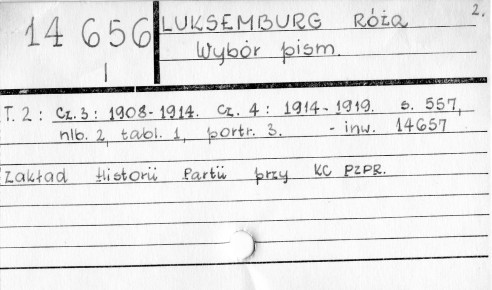 2.
14 656 LUKSEMBURG Róża
I Wybór pism.
T. 2: Cz. 3: 1908-1914. Cz. 4: 1914-1919. s. 557,
nlb. 2, tabl. 1, portr. 3. - inw. 14657
Zakład Historii Partii przy KC PZPR.